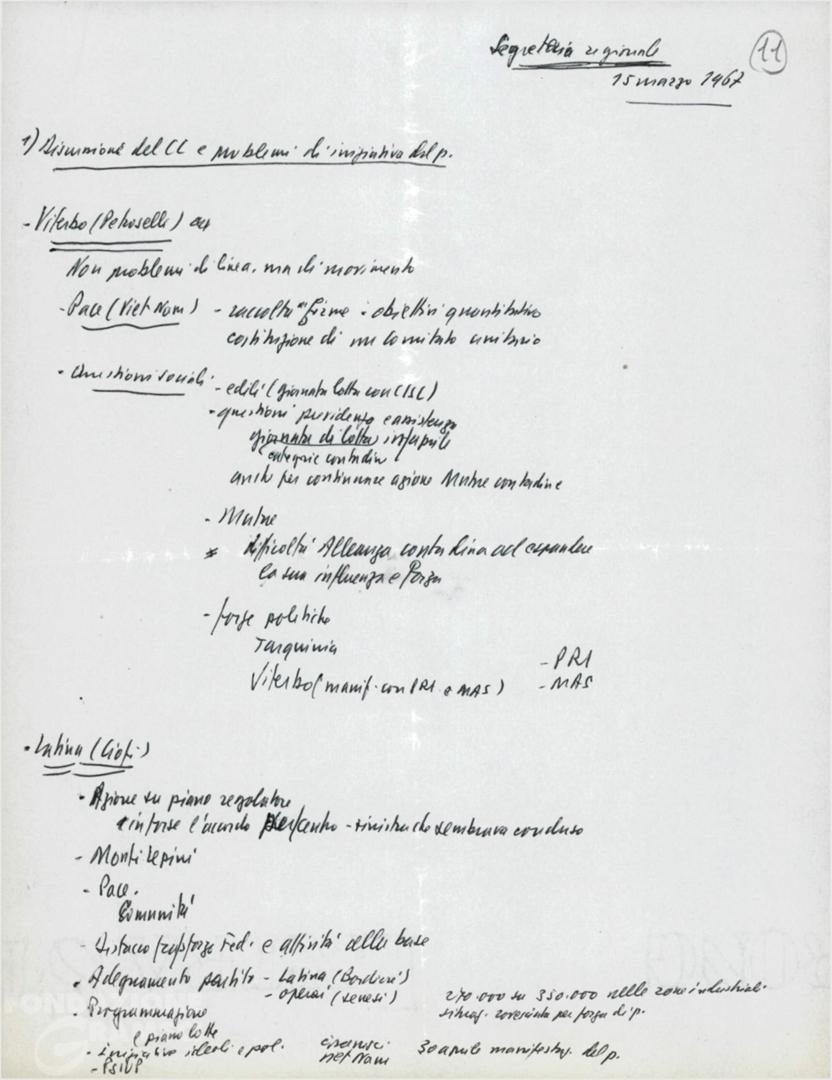 Segreteria regionale
11
15 marzo 1967
1) Discussione del CC e problemi di iniziativa del p.
- Viterbo (Petroselli)
Non problemi di linea, ma di movimento
- Pace (Viet Nam) - raccolta firme - obiettivi quantitativi
costituzione di un Comitato unitario
- Questioni sociali - edili (giornata lotta con CISL)
- questioni previdenza e assistenza
giornata di lotta
categorie contadine
anche per continuare azione Mutue contadine
- Mutue
difficoltà Alleanza contadina ad espandere
la sua influenza e forza
- forze politiche
Tarquinia
- PRI
Viterbo (manif. con PRI e MAS) - MAS
- Latina (Ciofi)
- Azione su piano regolatore
l'accordo centro-sinistra che sembrava concluso
- Monti Lepini
- Pace.
Comunità
- Distacco forza Fed. e attività della base
- Adeguamento partito - Latina (Bordieri)
- operai (senesi)
270.000 su 350.000 nelle zone industriali.
situaz. rovesciata per forza di p.
- Programmazione
e piano lotte
- iniziative ideali e pol.
Viet Nam
30 aprile manifestaz. del p.
- PSIUP
FONDAZIONE